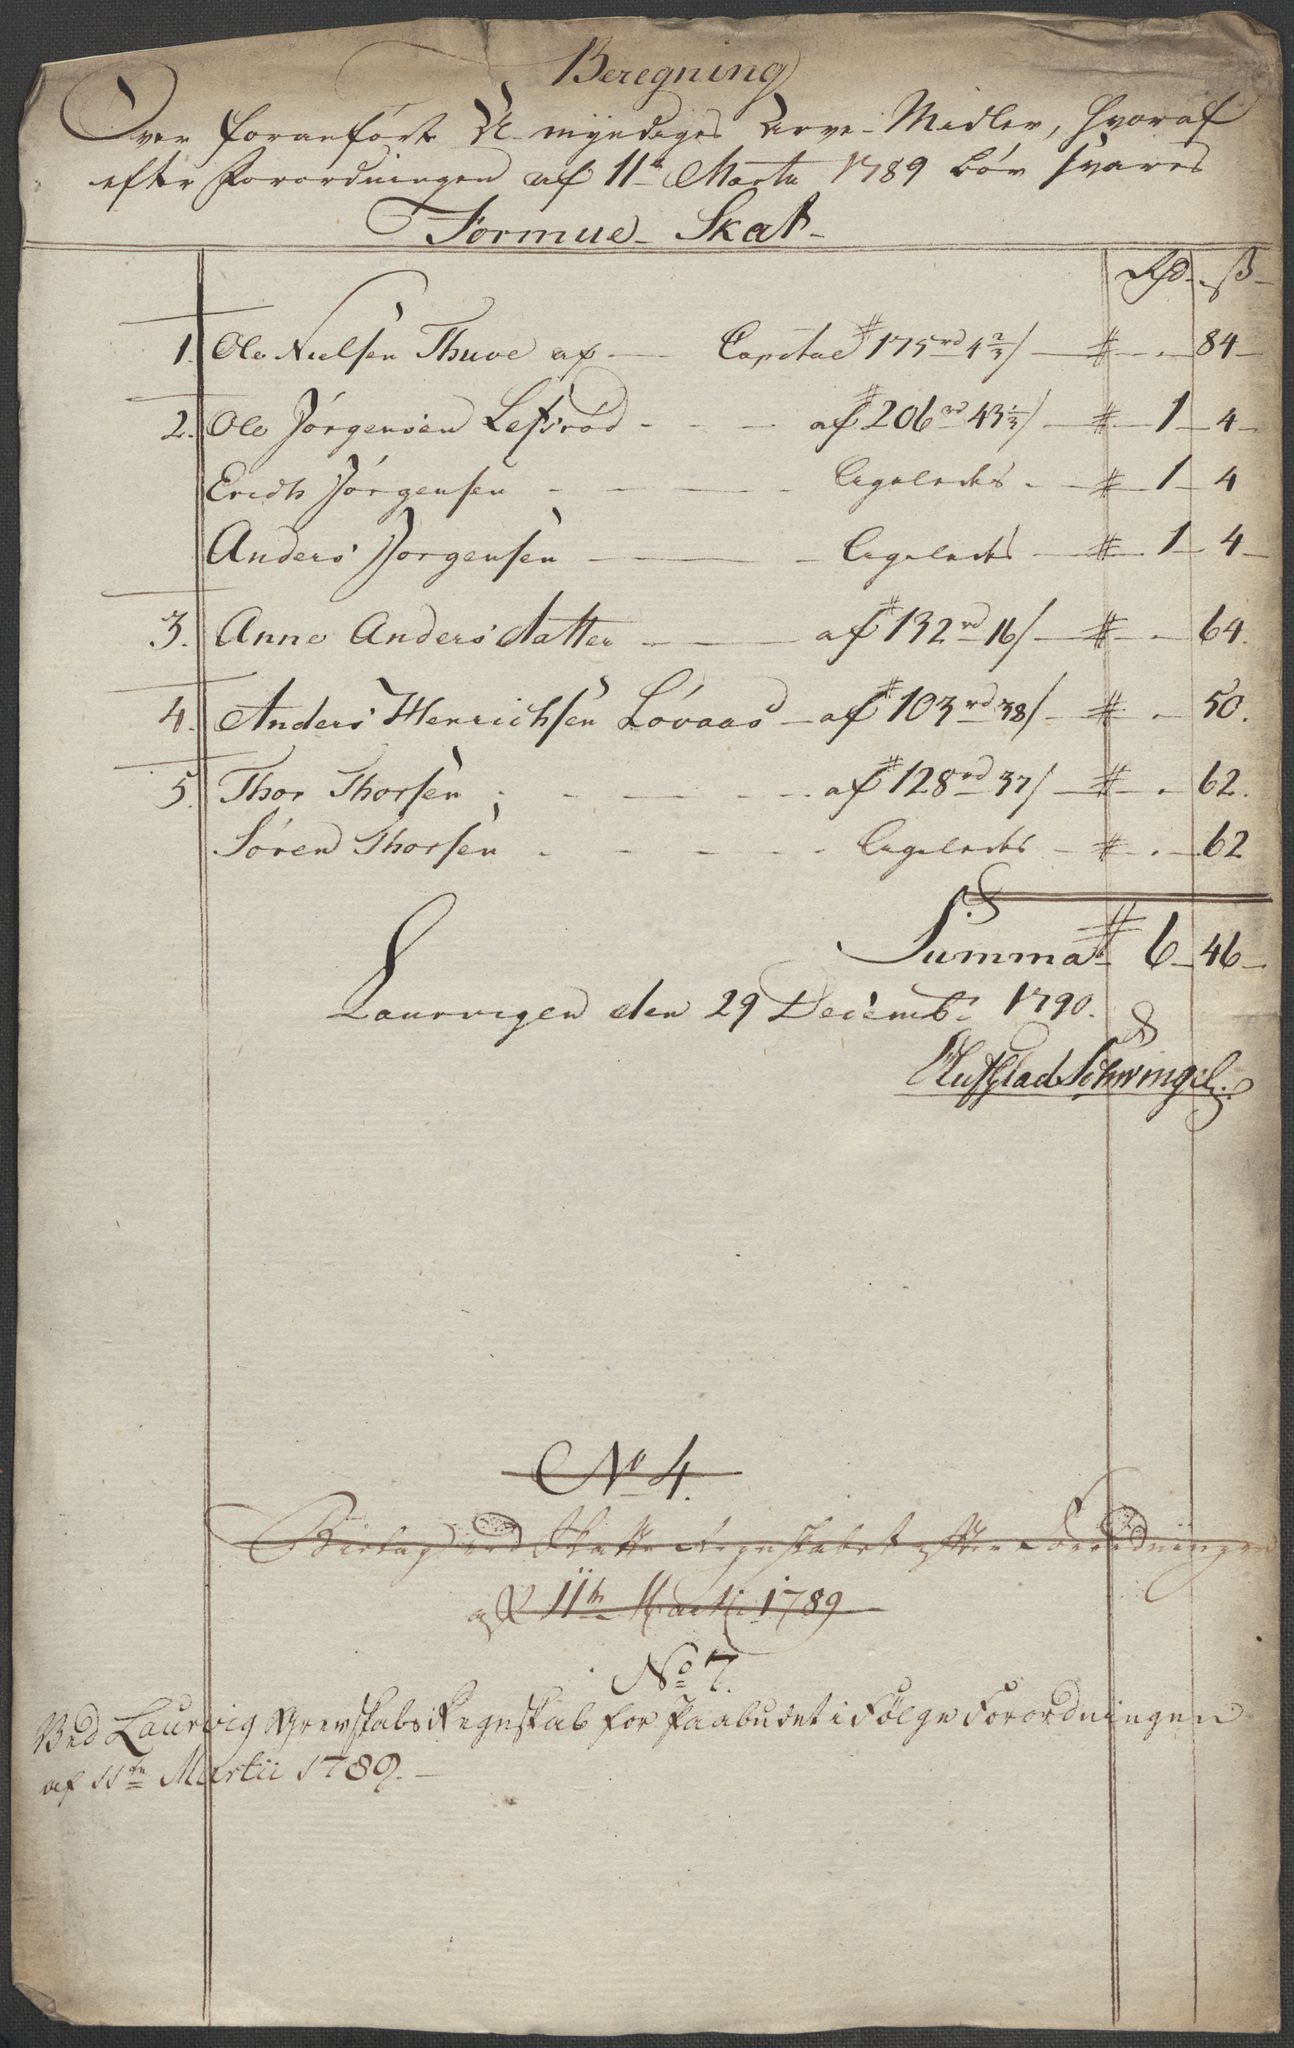 Beregning
Over foranførte U-myndiges Arve-Midler, hvoraf
efter Forordningen af 11te Martii 1789 bør svares
Formue-Skat-
Rd - ß -
1. Ole Nielsen Thuve af - Capital # 175 rd 4 2/3 / - # . - 84 -
2. Ole Jørgensen Lefsrød - - - af # 206 rd 43 1/3 / - # - 1 - 4 -
Erich Jørgensen - - - - Ligeledes - # - 1 - 4
Anders Jørgensen - - - Ligeledes - # - 1 - 4 -
3. Anne Andersdatter - - - af # 132 rd 16 / - # - . 64.
4. Anders Henrichsen Løvaas - af # 103 rd 38 / - # - . 50.
5. Thor Thorsen - - - - af # 128 rd 37 / - # - . 62.
Søren Thorsen - - - - - Ligeledes - # - . - 62
Summa # 6 - 46 -
Laurvigen den 29 Decembr 1790.
Schwingel.
No 4.
Bielag ved Skatte Regnskabet efter Forordningen
af 11te Martii 1789
No 7.
Ved Laurvig Grevskabs Regnskab for Paabudet i Følge Forordningen
af 11te Martii 1789. -